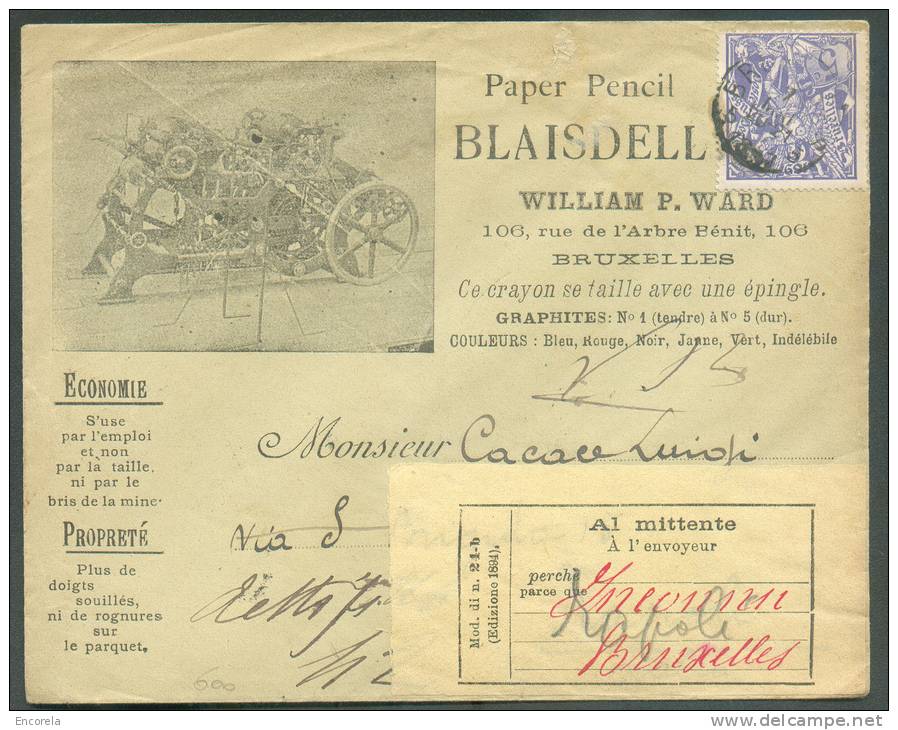 Paper Pencil
BLAISDELL
WILLIAM P. WARD
106, rue de l'Arbre Bénit, 106
BRUXELLES
Ce crayon se taille avec une épingle.
GRAPHITES: No 1 (tendre) à No 5 (dur).
COULEURS : Bleu, Rouge, Noir, Jaune, Vert, Indélébile
ECONOMIE
S'use
par l'emploi
et non
par la taille,
ni par le
bris de la mine.
PROPRETÉ
Plus de
doigts
souillés,
ni de rognures
sur
le parquet.
Monsieur Cacace Luigi
via S
Mod. di n. 24-b
(Edizione 1894).
Al mittente
À l'envoyeur
perchè
parce que Inconnu
Napoli
Bruxelles
600
Encorela
www.delcampe.net